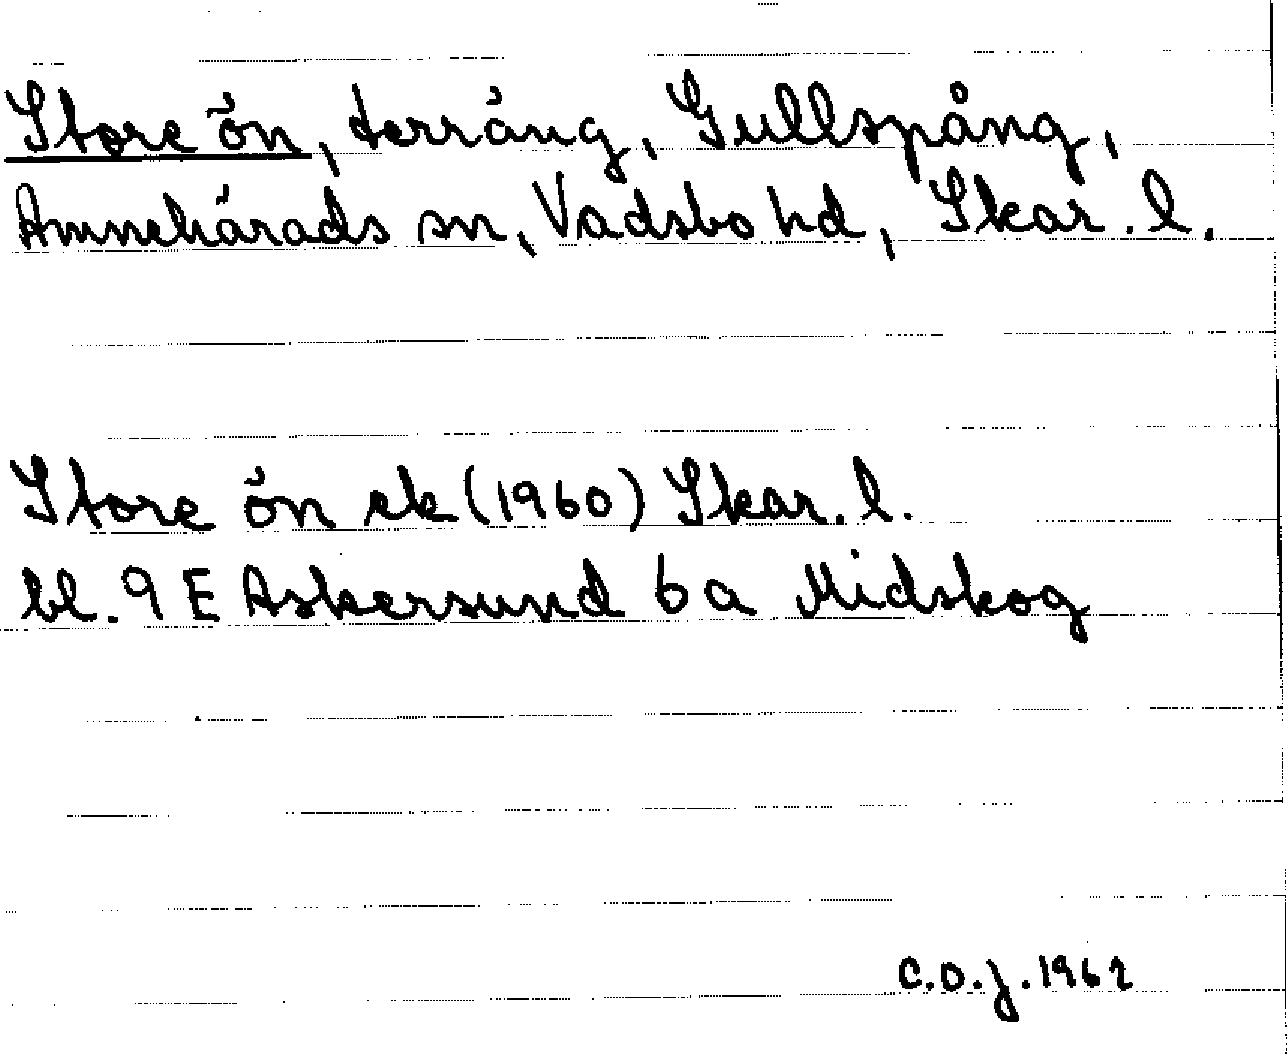 Store ön, terräng, Gullspång,
Amnehärads sn, Vadsbo hd, Skar. l.
Store ön ek (1960) Skar. l.
bl. 9 E Askersund 6 a Midskog
C.O.J. 1962